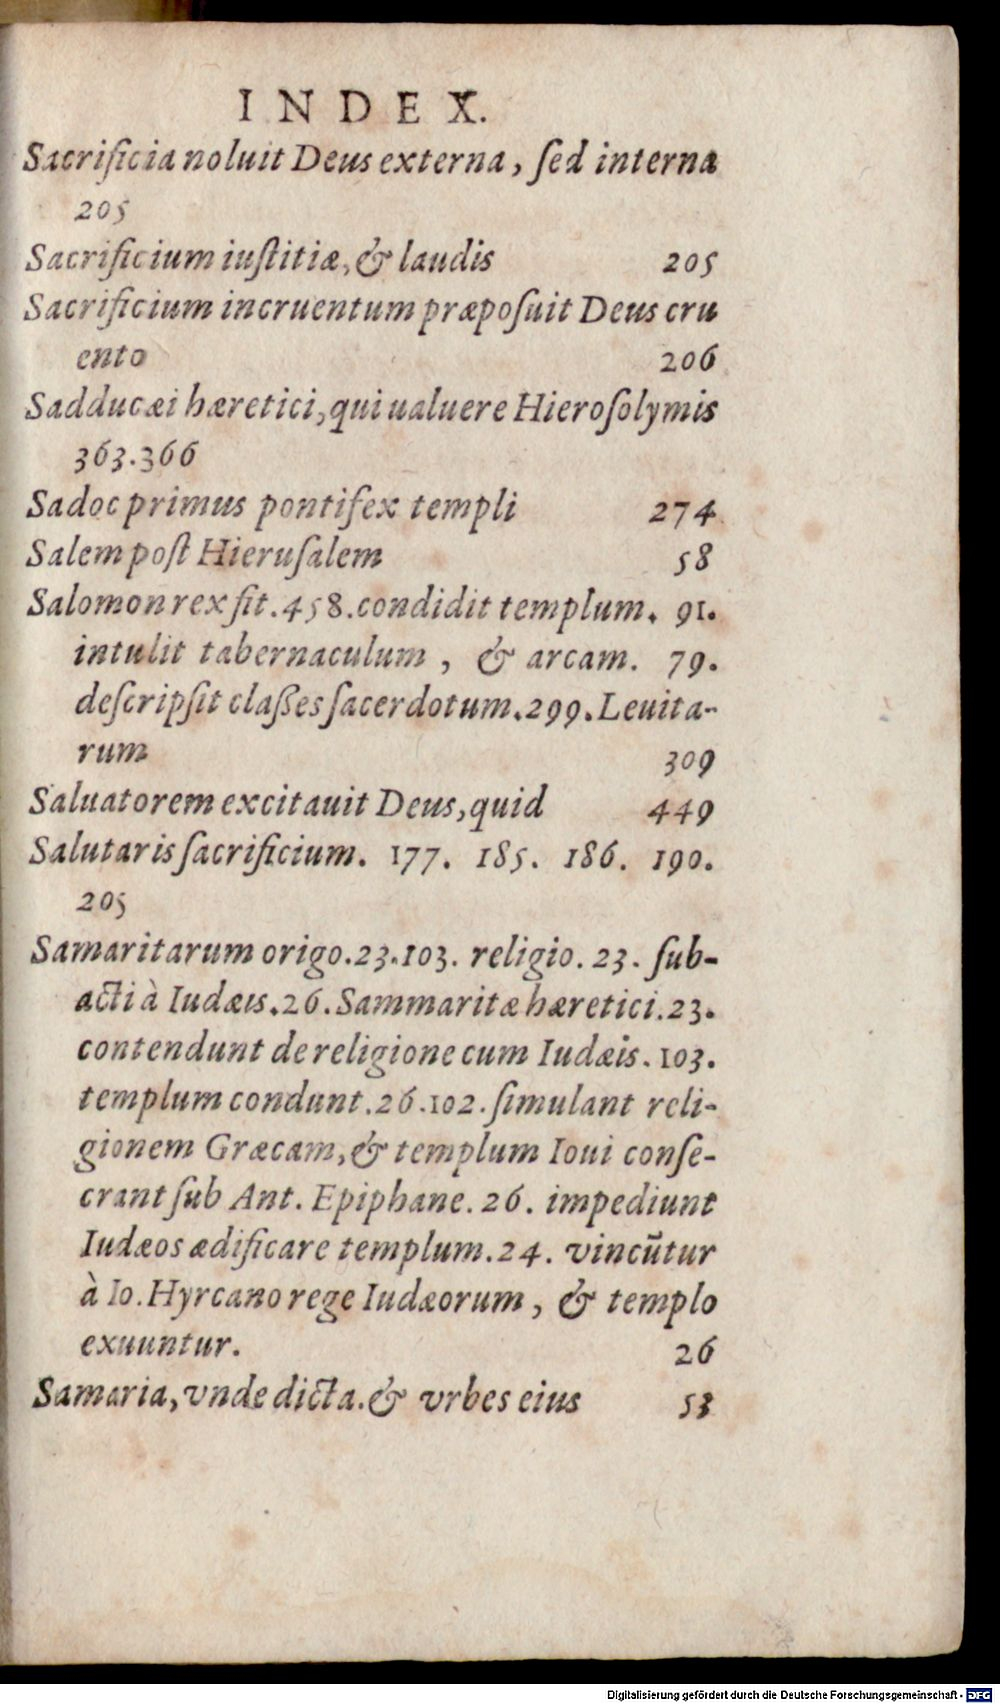 INDEX.
Sacrificia noluit Deus externa, ſed interna
205
Sacrificium iuſtitiæ, & laudis 205
Sacrificium incruentum præpoſuit Deus cru
ento 206
Sadducæi hæretici, qui ualuere Hieroſolymis
363.366
Sadoc primus pontifex templi 274
Salem poſt Hieruſalem 58
Salomon rex fit.458.condidit templum. 91.
intulit tabernaculum, & arcam. 79.
deſcripſit claßes ſacerdotum.299.Leuita-
rum 309
Saluatorem excitauit Deus, quid 449
Salutaris ſacrificium. 177. 185. 186. 190.
205
Samaritarum origo.23.103. religio. 23. ſub-
acti à Iudæis.26.Sammaritæ hæretici.23.
contendunt de religione cum Iudæis.103.
templum condunt.26.102.ſimulant reli-
gionem Græcam, & templum Ioui conſe-
crant ſub Ant. Epiphane. 26. impediunt
Iudæos ædificare templum.24. vincũtur
à Io.Hyrcano rege Iudæorum, & templo
exuuntur. 26
Samaria, vnde dicta.& vrbes eius 53
Digitalisierung gefördert durch die Deutsche Forschungsgemeinschaft - DFG